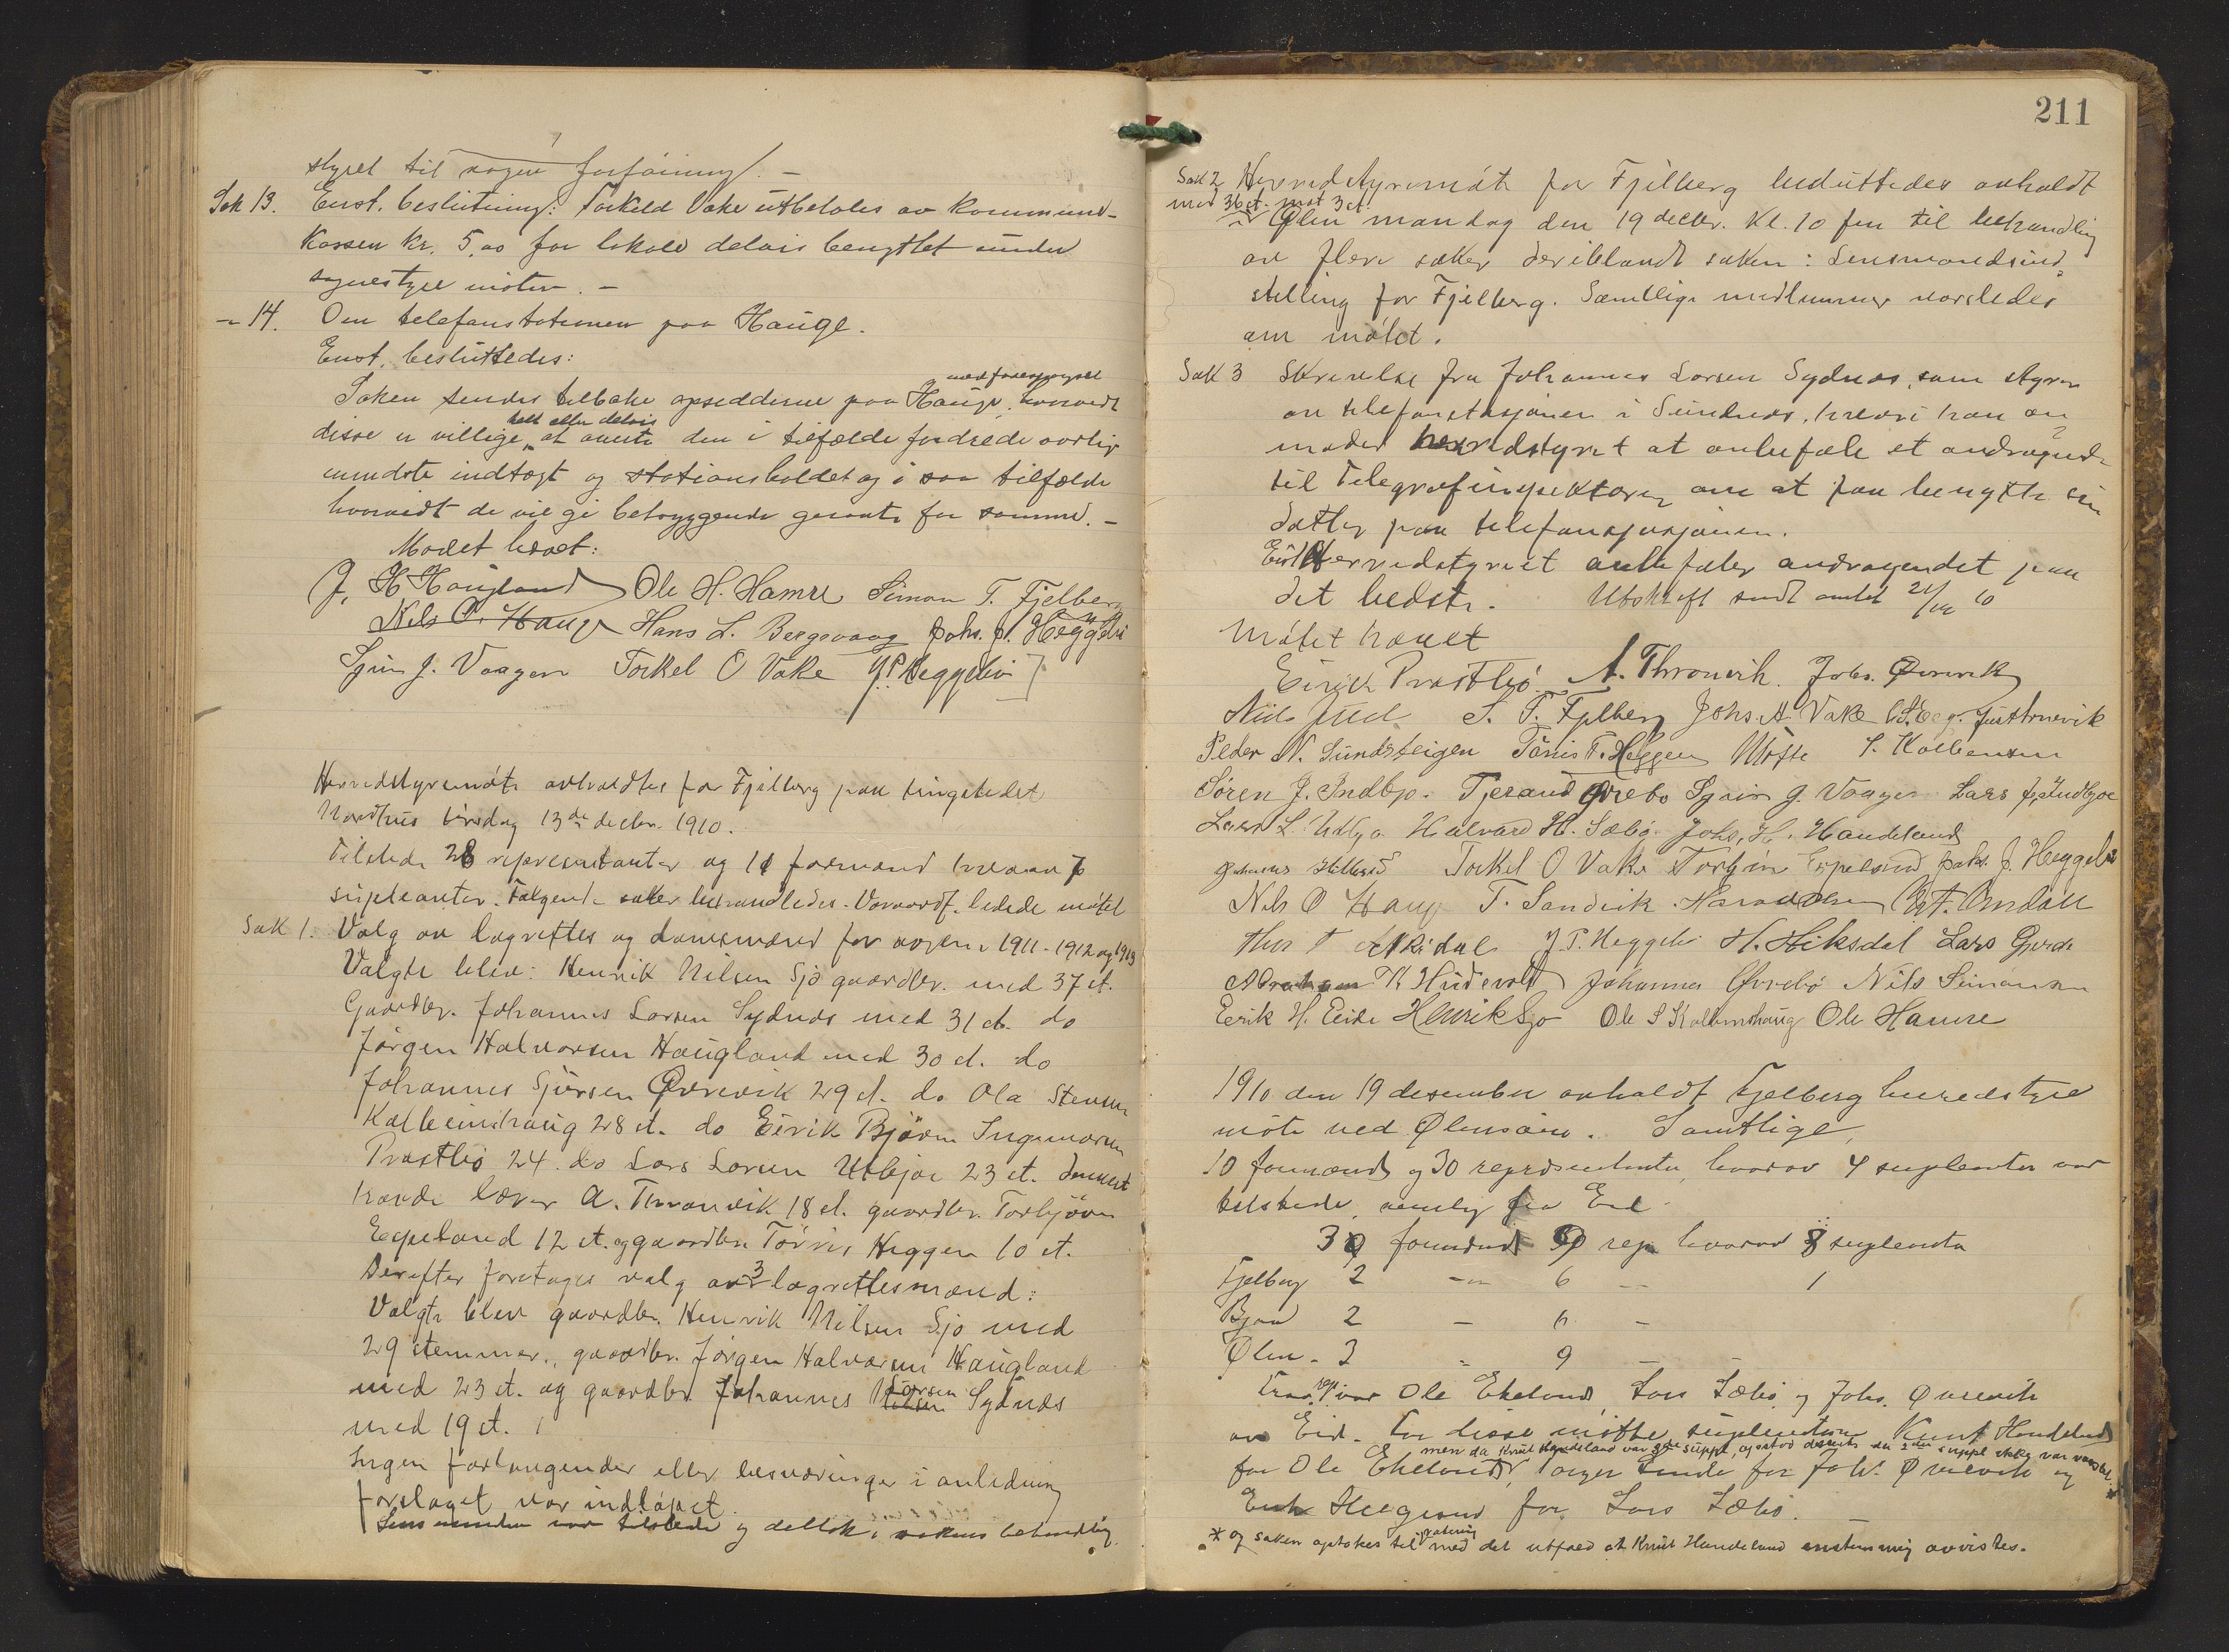 styret til nogen forføining. -
Sak 13. Enst. beslutning: Torkild Vake utbetales av kommune-
kassen kr. 5,00 for lokale delvis benyttet under
sognestyre møter. -
- 14. Om telefonstationen paa Hauge.
Enst. besluttedes:
Saken sendes tilbake opsidderne paa Hauge, med forespørsel hvorvidt
disse er villige helt eller delvis at overta den i tilfælde fordrede aarlig
mindste indtægt og stationsholdet og i saa tilfælde
hvorvidt de vil gi betryggende garanti for samme. -
Mødet hævet:
J. H. Haugland Ole H. Hamre Simon T. Fjelberg
Nels O. Hauge Hans L. Bergsvaag Johs. J. Heggelei
Sjur J. Vaagen Torkel O Vake J P Heggelei
Herredstyremøte avholdtes for Fjelberg paa tingstedet
Nordhus tirsdag 13de decbr. 1910.
Tilstede 28 representanter og 10 formænd hvorav 7
supleanter. Følgende saker behandledes. Varaordf. ledede møtet
Sak 1. Valg av lagrettes og domsmænd for aarene 1911-1912 og 1913
Valgte blev: Henrik Nilsen Sjo gaardbr. med 37 st.
Gaardbr. Johannes Larsen Sydnæs med 31 st. do
Jørgen Halvorsen Haugland med 30 st. do
Johannes Sjursen Øvrevik 29 st. do Ola Stensen
Kalbeinshaug 28 st. do Eirik Bjørn Ingemarsen
Præstbø 24. do Lars Larsen Utbjoe 23 st. dernæst
havde lærer A. Thronvik 18 st. gaardbr. Torbjørn
Espeland 12 st. og gaardbr. Tørris Heggen 10 st.
Derefter foretages valg av 3 lagrettesmænd:
Valgte blev gaardbr. Henrik Nilsen Sjo med
29 stemmer, gaardbr. Jørgen Halvorsen Haugland
med 23 st. og gaardbr. Johannes Larsen Sydnæs
med 19 st.
Ingen forlangender eller besværinger i anledning
forslaget var indløpet.
Lensmanden var tilstede og deltok i sakens behandling.
211
Sak 2 Herredstyremøte for Fjelberg besluttedes avholdt
med 36 st. mot 3 st.
i Ølen mandag den 19 decbr. kl. 10 fm til behandling
av flere saker deriblandt saken: Lensmandsind-
stilling for Fjelberg. Samtlige medlemmer varsledes
om møtet.
Sak 3 Skrivelse fra Johannes Larsen Sydnæs, som styrer
av telefonstasjonen i Sundnæs, hvori han an-
moder herredstyret at anbefale et andragende
til Telegrafinspektøren om at faa benytte sin
datter paa telefonstasjonen.
Enst. Herredstyret anbefaler andragendet paa
det bedste. Utskrift sendt amtet 21/12 10
Møtet hævet
Eirik Præstbø A. Thronvik. Johs. Øvrevik
Nils Juul S. T. Fjelberg Johs. A. Vake
Peder N. Sundsteigen Tørris T. Heggen S. Kolbensen
Søren J. Indbjo. Tjerand Øvrebø Sjur J. Vaagen Lars J. Indbjoe
Lars L. Utbjo Halvard H. Sæbø. Johs. H. Handeland
Torkel O Vake Torbjørn Espeland Johs. J. Heggelei
Nils O Hauge T. Sandvik
J. P. Heggelei H. Hiksdal Lars Gjerde
Abraham K Hudevold Johannes Øvrebø Nils Simonsen
Eerik H. Eide Henrik Sjo Ole S Kalbeinshaug Ole Hamre
1910 den 19 desember avholdt Fjelberg herredstyre
møte ved Ølensøen. Samtlige,
10 formænd og 30 representanter, hvorav 4 suplenter var
tilstede, nemlig fra Eid
3 formænd 9 rep. hvorav 3 suplenter
Fjelberg 2 - 6 - 1
Bjoa 2 - 6 -
Ølen - 3 - 9 - -
Frav. var Ole Ekeland, Lars Sæbø og Johs. Øvrevik
av Eid. For disse møtte suplenterne Knut Handeland
men da Knut Handeland var 3de suppl., opstod
for Ole Ekeland, for Joh. Øvrevik og *
for Lars Sæbø.
* og saken optokes til votering med det utfald at Knut Handeland enstemmig avvistes.